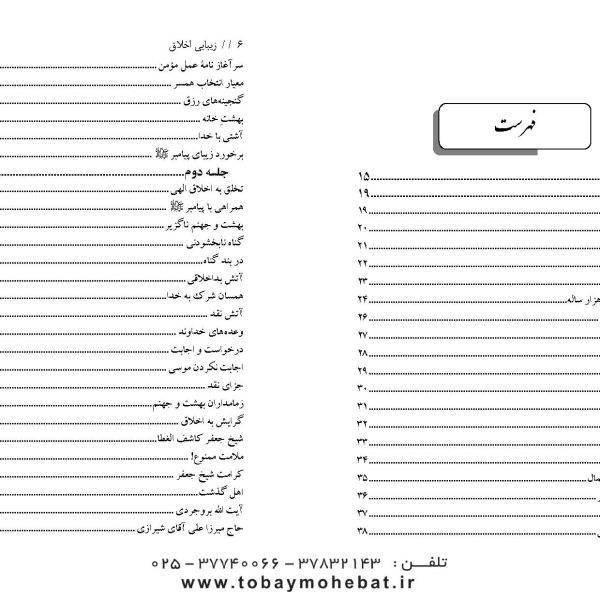 فهرست
۱۵
۱۹
۱۹
۲۰
۲۱
۲۲
۲۳
هزار ساله ۲۴
۲۶
۲۷
۲۸
۲۹
۳۰
۳۱
۳۲
۳۳
۳۴
۳۵
۳۶
۳۷
۳۸
۶ // زیبایی اخلاق
سرآغاز نامهٔ عمل مؤمن
معیار انتخاب همسر
گنجینه‌های رزق
بهشتِ خانه
آشتی با خدا
برخورد زیبای پیامبر ﷺ
جلسه دوم
تخلق به اخلاق الهی
همراهی با پیامبر ﷺ
بهشت و جهنم ناگزیر
گناه نابخشودنی
در بند گناه
آتش بداخلاقی
همسان شرک به خدا
آتش نقد
وعده‌های خداوند
درخواست و اجابت
اجابت نکردن موسی
جزای نقد
زمامداران بهشت و جهنم
گرایش به اخلاق
شیخ جعفر کاشف الغطا
ملامت ممنوع!
کرامت شیخ جعفر
اهل گذشت
آیت الله بروجردی
حاج میرزا علی آقای شیرازی
تلفن: ۳۷۸۳۲۱۴۳ – ۳۷۷۴۰۰۶۶ – ۰۲۵
www.tobaymohebat.ir